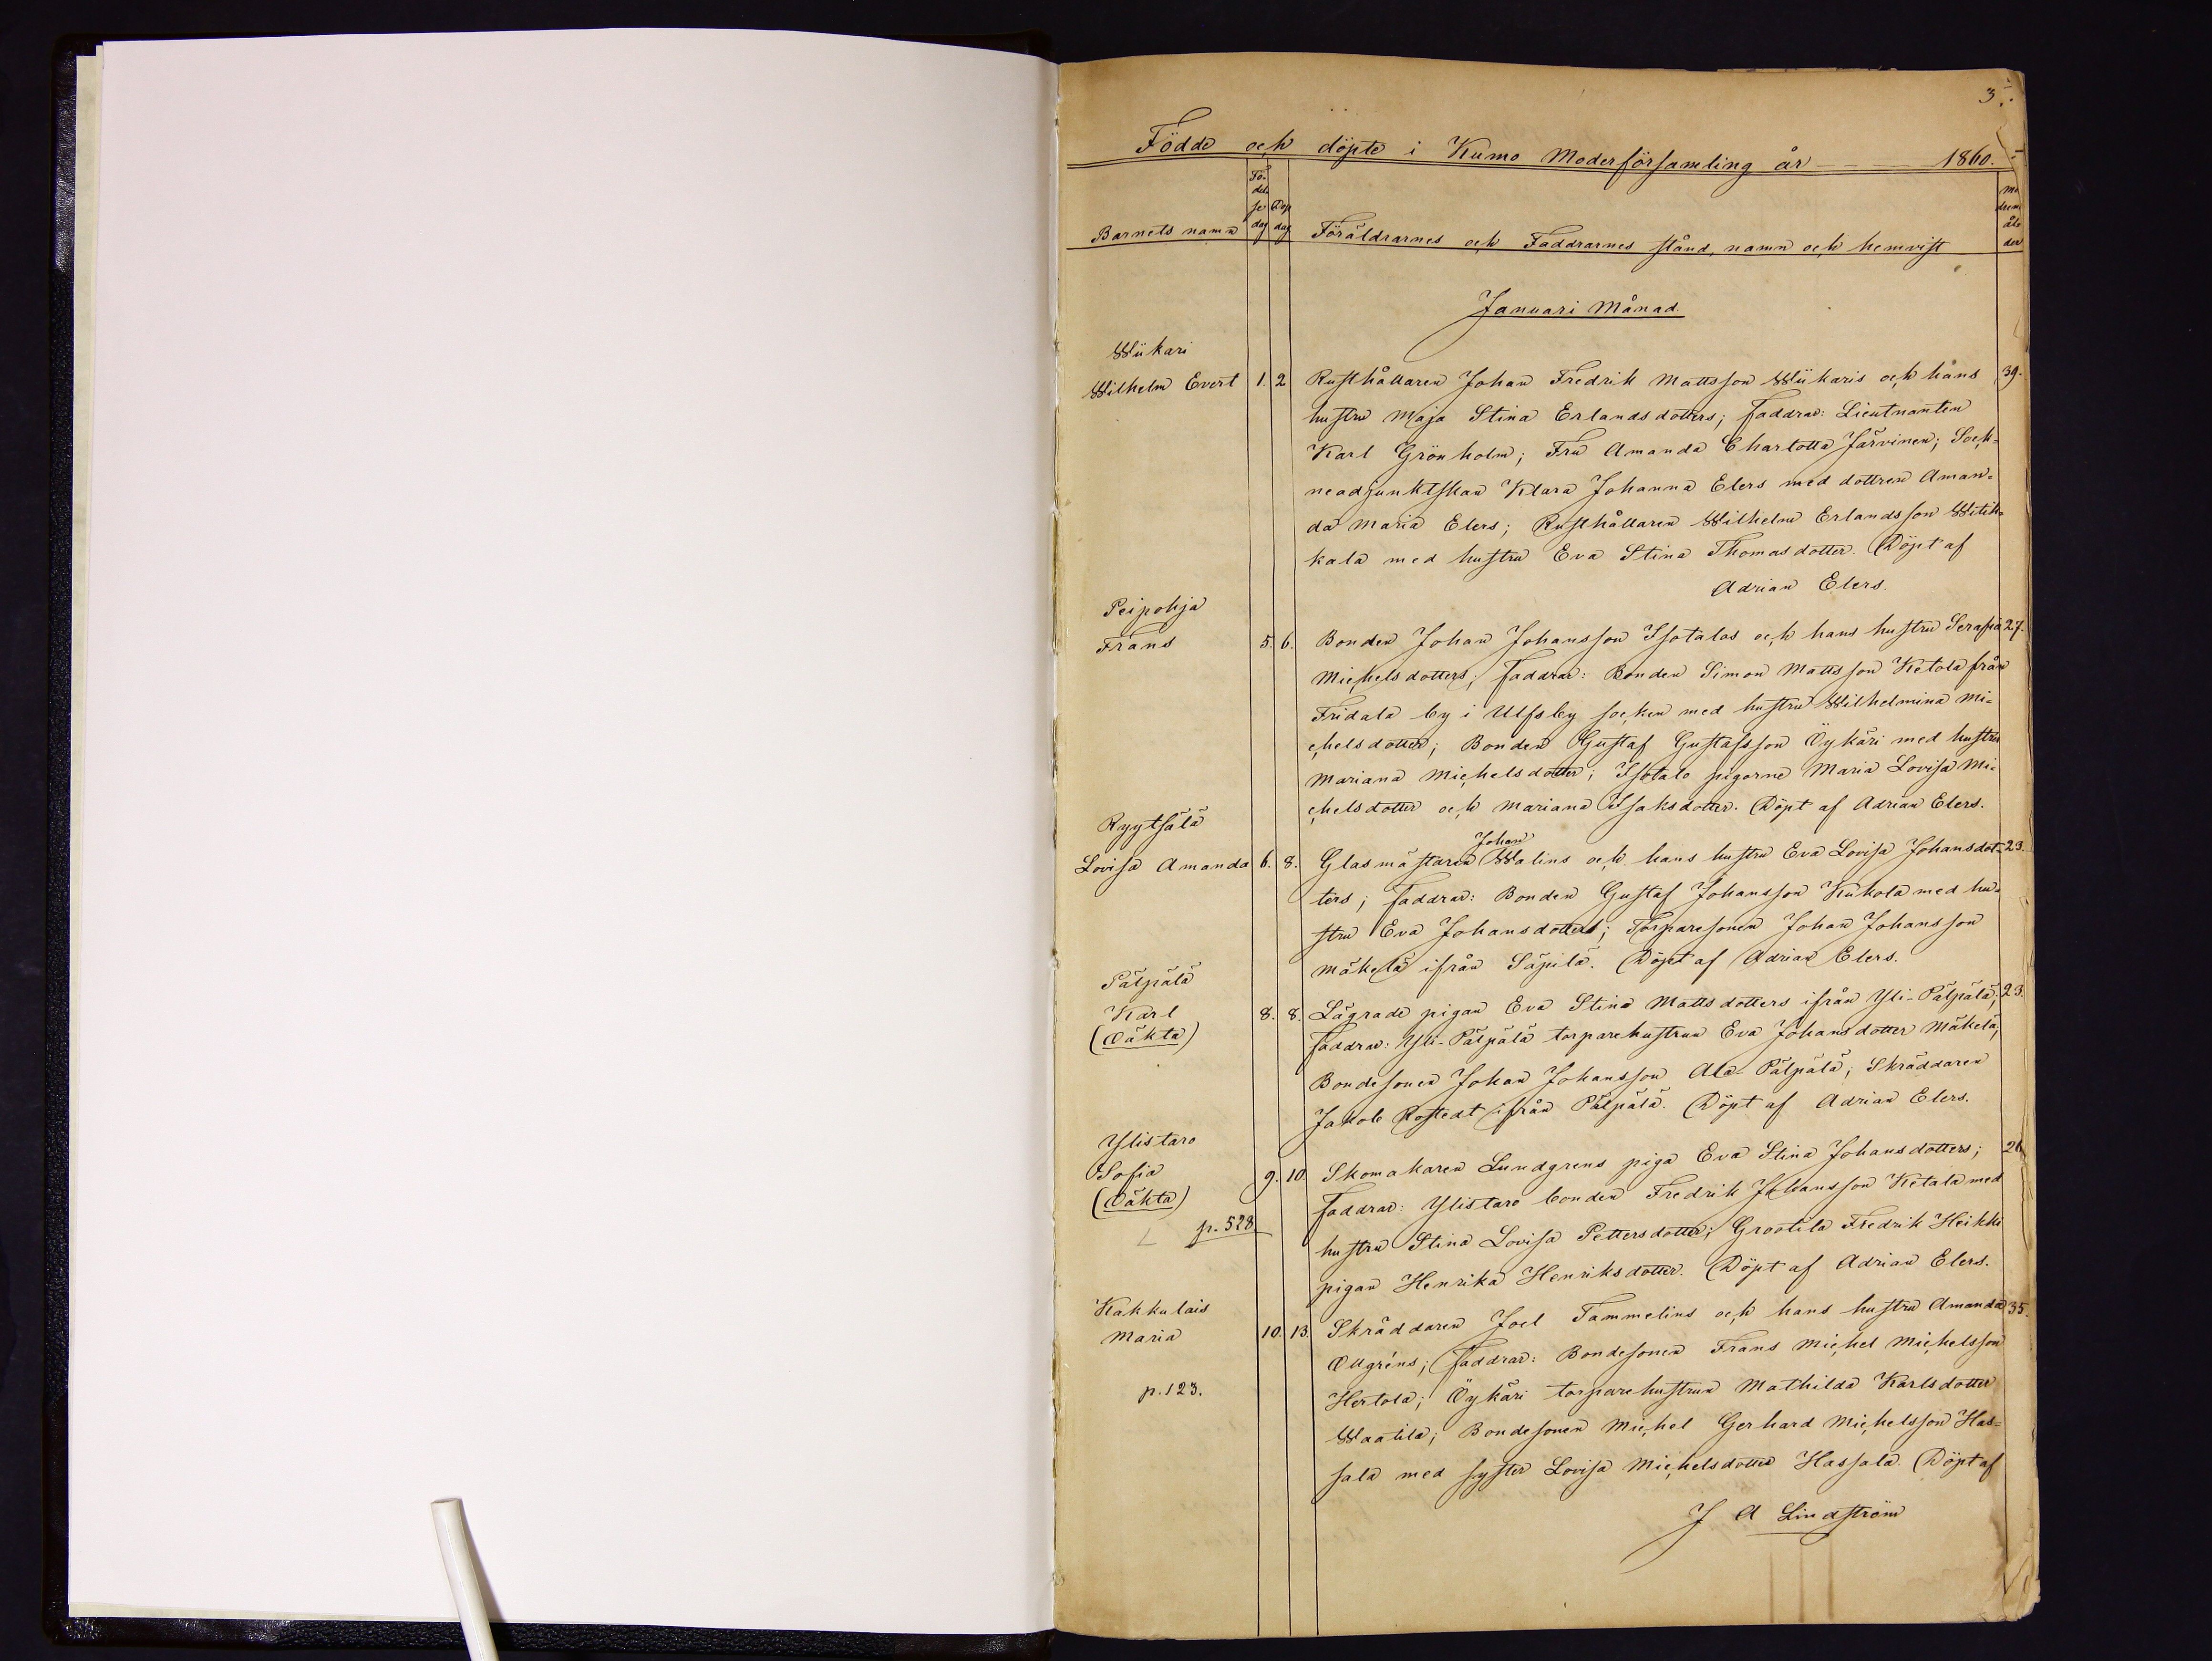 3.
Födde och döpte i Kumo Moderförsamling år 1860.
Barnets namn
Fö-
del-
se-
dag
Dop
dag
Föräldrarnes och Faddrarnes stånd, namn och hemvist
Mo
drens
ål-
der
Januari Månad
Wiikari
Wilhelm Evert 1. 2 Rusthållaren Johan Fredrik Mattsson Wiikaris och hans 39.
hustru Maja Stina Erlandsdotters; Faddrar: Lieutnanten
Karl Grönholm; Fru Amanda Charlotta Järvinen; Sock-
neadjunktskan Klara Johanna Elers med dottren Aman-
da Maria Elers; Rusthållaren Wilhelm Erlandsson Witik-
kala med hustru Eva Stina Thomasdotter. Döpt af
Adrian Elers.
Peipohja
Frans 5. 6. Bonden Johan Johansson Isotalos och hans hustru Serafia 27.
Michelsdotters; Faddrar: Bonden Simon Mattsson Ketola från
Fridala by i Ulfsby socken med hustru Wilhelmina Mi-
chelsdotter; Bonden Gustaf Gustafsson Öykäri med hustru
Mariana Michelsdotter; Isotalo pigorne Maria Lovisa Mi-
chelsdotter och Mariana Isaksdotter. Döpt af Adrian Elers.
Ryytsälä
Johan
Lovisa Amanda 6. 8. Glasmästaren Walins och hans hustru Eva Lovisa Johansdot- 23.
ters; Faddrar: Bonden Gustaf Johansson Kukola med hu-
stru Eva Johansdotter; Torparesonen Johan Johansson
Mäkelä ifrån Säpilä. Döpt af Adrian Elers.
Pälpälä
Karl 8. 8. Lägrade pigan Eva Stina Mattsdotters ifrån Yli-Pälpälä; 23.
(Oäkta) Faddrar: Yli-Pälpälä torparehustrun Eva Johansdotter Mäkelä,
Bondesonen Johan Johansson Ala-Pälpälä; Skräddaren
Jakob Rostedt ifrån Pälpälä. Döpt af Adrian Elers.
Ylistaro
Sofia 9. 10 Skomakaren Lundgrens piga Eva Stina Johansdotters; 26
(Oäkta) Faddrar: Ylistaro bonden Fredrik Johansson Ketala med
p. 528 hustru Stina Lovisa Pettersdotter; Grootila Fredrik Heikki
pigan Henrika Henriksdotter. Döpt af Adrian Elers.
Kakkulais
Maria 10. 13. Skräddaren Joel Tammelins och hans hustru Amanda 35.
Ollgréns; Faddrar: Bondesonen Frans Michel Michelsson
p. 123. Hertola; Öykäri torparehustrun Mathilda Karlsdotter
Waatila; Bondesonen Michel Gerhard Michelsson Has-
sala med syster Lovisa Michelsdotter Hassala. Döpt af
J A Lindström